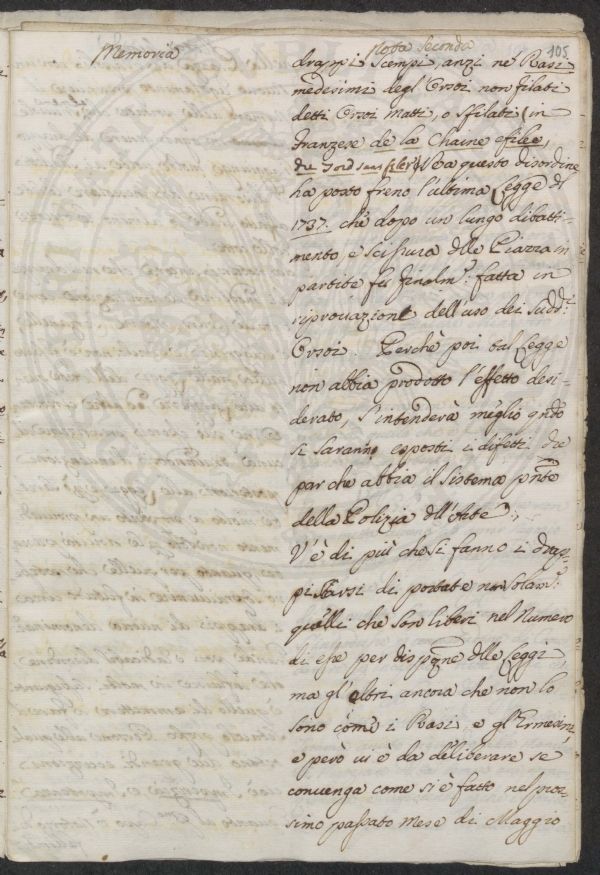 Memoria
Nota Seconda
105
drappi Scempi, anzi ne' Rasi
medesimi degl' Orsoi non filati
detti Orsoi matti, o sfilati (in
Franzese de la Chaine efilee,
ha posto freno l'ultima Legge di
1737. chè dopo un lungo dibatti-
mento, e scissura dlle Piazza in
partite fu finalm.e fatta in
riprovazione dell'uso dei sudd.i
Orsoi. Perchè poi tal Legge
non abbia prodotto l'effetto desi-
derato, s'intenderà meglio qndo
si saranno esposti i difetti che
par che abbia il Sistema pnte
della Polizia dll'Arte.
V'è di più che si fanno i drap-
pi scarsi di portate non solam.e
quelli che son liberi nel Numero
di esse per disp̃ne dlle Leggi,
ma gl'altri ancora che non lo
sono com'è i Rasi, e gl'Ermesini,
e però vi è da deliberare se
convenga come si è fatto nel pros-
simo passato Mese di Maggio